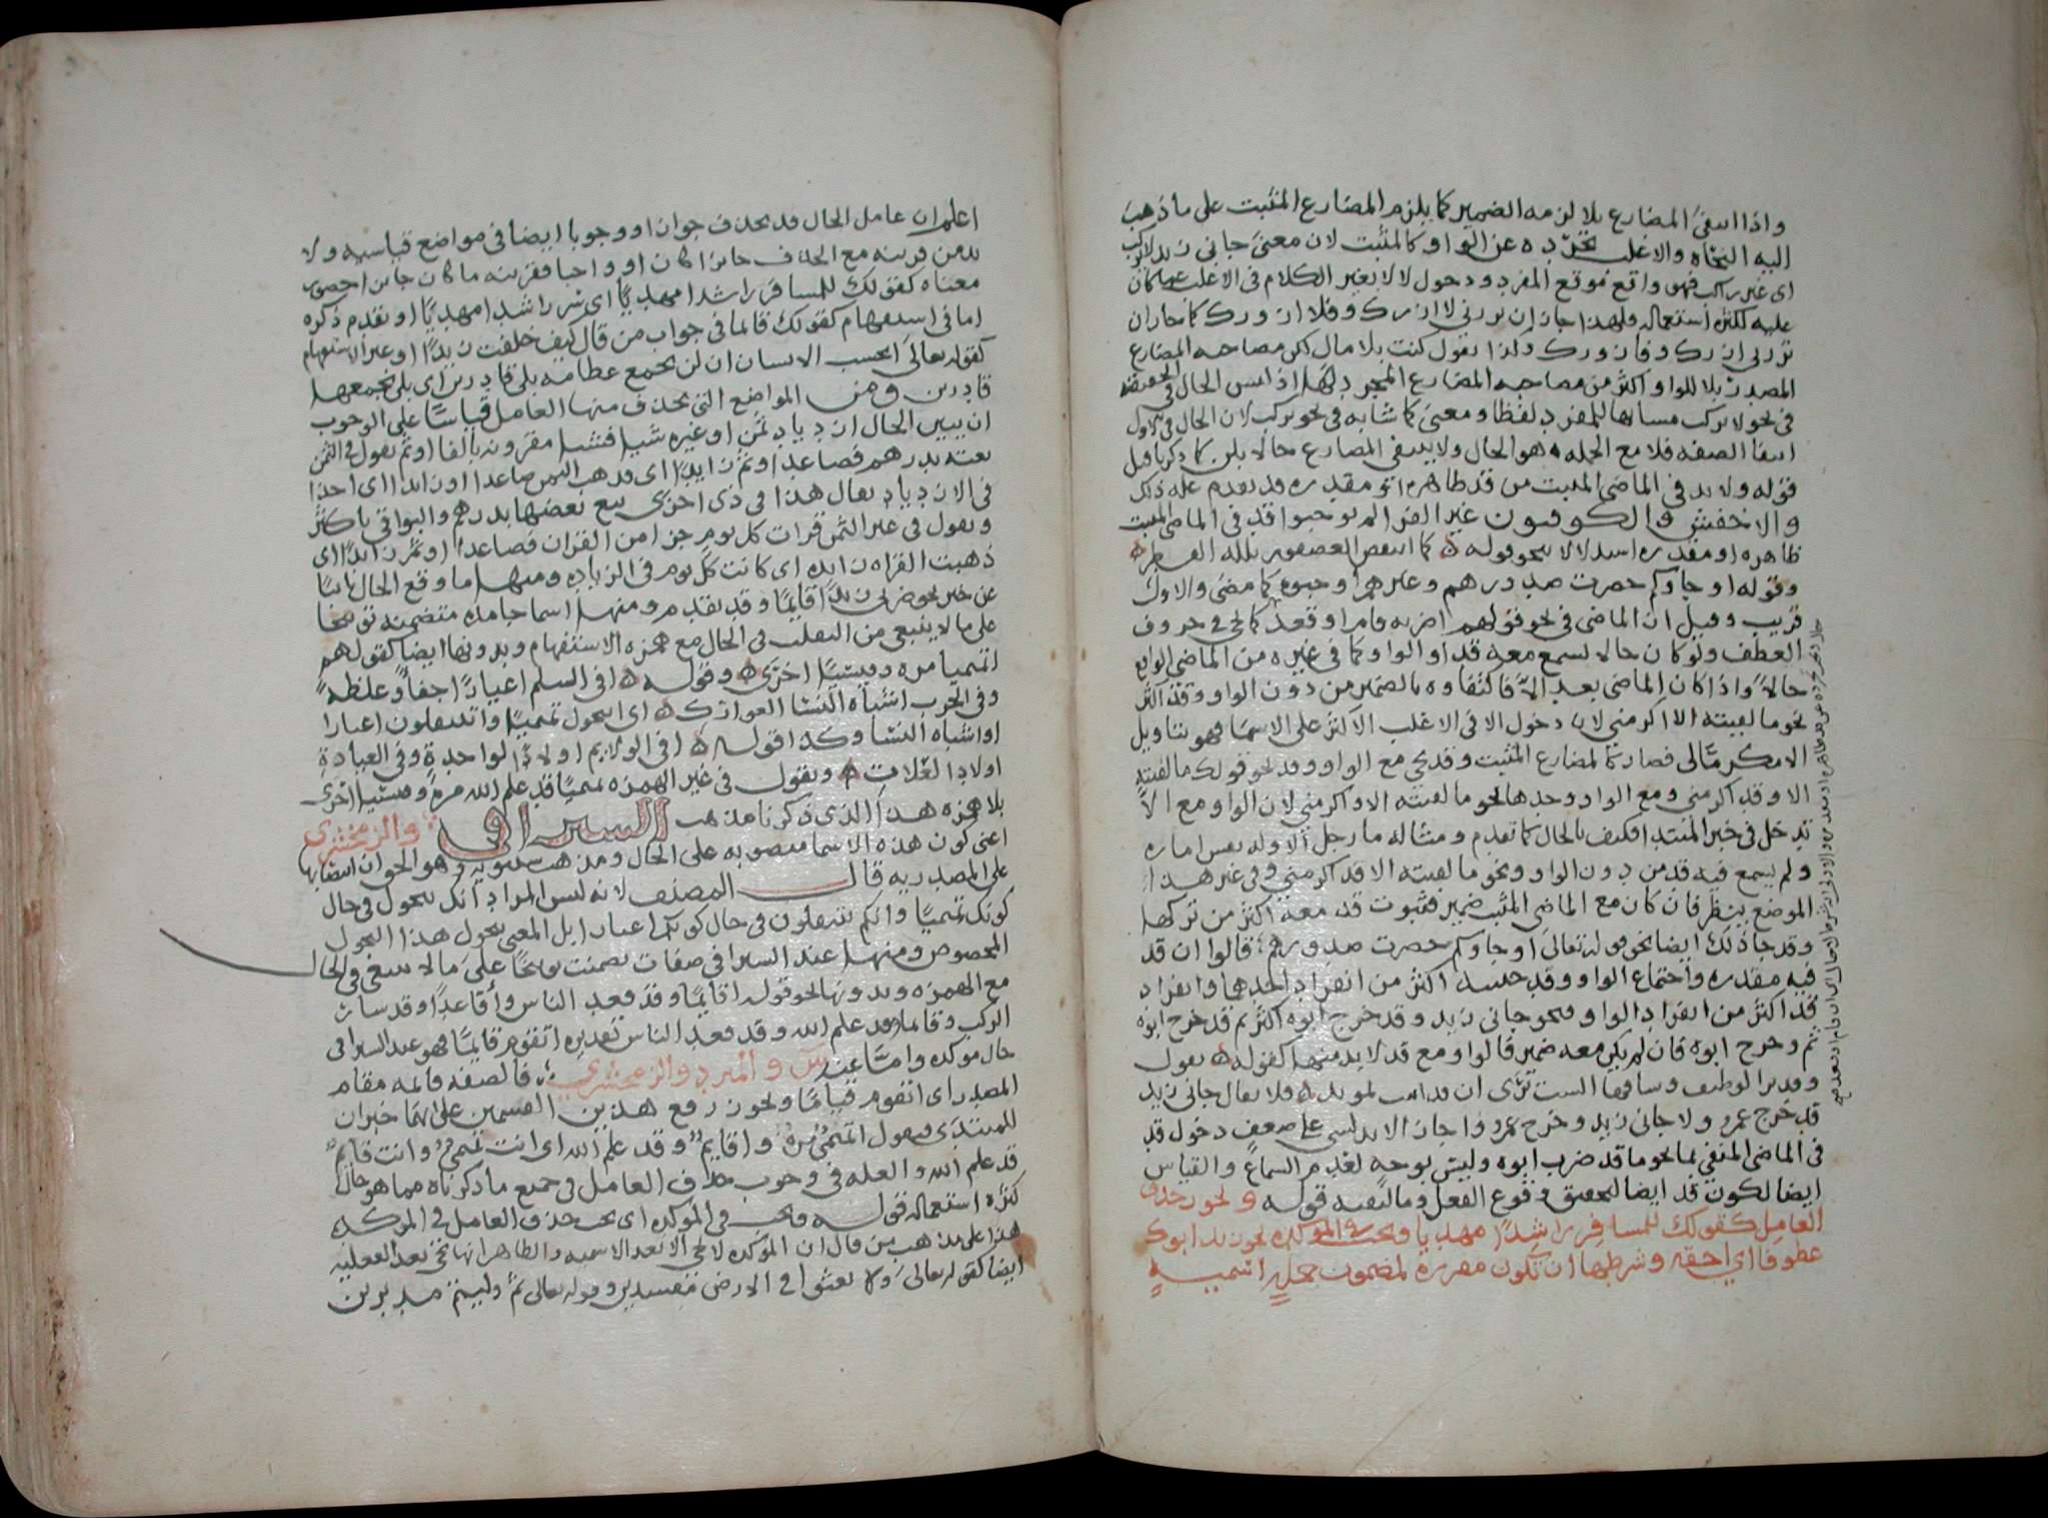 واذا انتفى المضارع بلا لزمه الضمير كما يلزم المضارع المثبت على ما ذهب
اليه النحاه والاغلب تجرّده عن الواو كالمثبت لان معنى جاني زيد لا يركب
اى غير راكب فهو واقع موقع المفرد ودخول لا لا يغير الكلام في الاغلب عما كان
عليه لكثرة استعماله ولهذا جاز ان تزرني لا ازرك وفلا ازورك كما جاز ان
تزرني ازرك وفازورك ولذا تقول كنت بلا مال لكن مصاحبه المضارع
المصدر بلا للواو اكثر من مصاحبه المضارع المجرد لها اذ ليس الحال في الحقيقة
في نحو لا يركب مشابها للمفرد لفظا ومعنى كما شابه في نحو يركب لان الحال في الاول
انتفا الصفه فلا مع الجمله هو الحال ولا ينتفى المضارع حالا بلن كما ذكرنا قبل
قوله ولا بد في الماضي المثبت من قد ظاهره او مقدره قد تقدم عله ذلك
والاخفش والكوفيون غير الفرا لم يوجبوا قد في الماضي المثبت
ظاهره او مقدره استدلالا بنحو قوله كما انتفض العصفور بلله القطر
وقوله او جاوكم حصرت صدورهم وغيرهم اوجبوه كما مضى والاول
قريب وقيل ان الماضي في نحو قولهم اضربه قام او قعد كما يجي في حروف
العطف ولو كان حالا لسمع معه قد او الواو كما في غيره من الماضي الواقع
حالاً واذا كان الماضي بعد الاّ فاكتفاوه بالضمير من دون الواو وقد اكثر
نحو ما لقيته الا اكرمني لان دخول الا في الاغلب الاكثر على الاسما فهو بتاويل
الا مكرمًا لى فصار كالمضارع المثبت وقد يجي مع الواو وقد نحو قولك ما لقيته
الا وقد اكرمني ومع الواو وحدها نحو ما لقيته الا واكرمني لان الواو مع الا
تدخل في خبر المبتدا فكيف بالحال كما تقدم ومثاله ما رجل الا وله نفس اماره
ولم يسمع فيه قد من دون الواو ونحو ما لقيته الا قد اكرمني وفي غير هذا
الموضع ينظر فان كان مع الماضي المثبت ضمير فثبوت قد معه اكثر من تركها
وقد جا ذلك ايضا نحو قوله تعالى او جاوكم حصرت صدورهم قالوا ان قد
فيه مقدره واجتماع الواو وقد حينيه اكثر من انفراد احدهما وانفراد
قد اكثر من انفراد الواو فنحو جاني زيد وقد خرج ابوه اكثر ثم قد خرج ابوه
ثم وخرج ابوه فان لم يكن معه ضمير فالواو مع قد لا بد منهما كقوله تقول
وقد تر الوظيف وساقها الست ترى ان قد اتيت بمويد فلا يقال جاني زيد
قد خرج عمرو ولا جاني زيد وخرج عمرو واجاز الاندلسي على ضعف دخول قد
في الماضي المنفي بما نحو ما قد ضرب ابوه وليس بوجه لعدم السماع والقياس
ايضا لكون قد ايضا لتحقيق وقوع الفعل وما لنفيه قوله ويجوز حذف
العامل كقولك للمسافر راشدًا مهديا ويجب في الموكده نحو زيد ابوك
عطوفا اي احقه وشرطها ان تكون مقرره لمضمون جمله اسميه
اعلم ان عامل الحال قد يحذف جوازا ووجوبا ايضا في مواضع قياسيه ولا
بد من قرينه مع الحذف جايزا كان او واجبا فقرينه ما كان جايزا حضور
معناه كقولك للمسافر راشدا مهديًا اى سر راشدا مهديًا او تقدم ذكره
اما في استفهام كقولك قايما في جواب من قال كيف خلفت زيدًا او غير الاستفهام
كقوله تعالى ايحسب الانسان ان لن نجمع عظامه بلى قادرين اى بلى نجمعها
قادرين ومن المواضع التى يحذف منها العامل قياسًا على الوجوب
ان يبين الحال ازدياد ثمن او غيره شيا فشيا مقرونه بالفا او ثم تقول في الثمن
بعته بدرهم فصاعدا او ثم زايدًا اى فذهب الثمن صاعدا او زايدا اى اخذا
في الازدياد يقال هذا في ذى اجزى بيع بعضها بدرهم والبواقي باكثر
وتقول في غير الثمن قرات كل يوم جزا من القران فصاعدًا او ثم زايدًا اى
ذهبت القراه زايده اى كانت كل يوم في الزياده ومنها ما وقع الحال نايبًا
عن خبر نحو ضربى زيدًا قايمًا وقد تقدم ومنها اسما جامده متضمنه توبيخا
على ما لا ينبغي من التقلب في الحال مع همزه الاستفهام وبدونها ايضا كقولهم
اتميميا مره وقيسيًا اخرى وقوله افي السلم اعيارًا جفاً وغلظةً
وفي الحرب اشباه النسا العوارك اى اتتحول تميميًا واتنتقلون اعيارا
او اشباه النسا وكذا قوله افي الولايم اولادًا لواحدةٍ وفي العيادة
اولاد العلات وتقول في غير الهمزه تميميًا قد علم الله مره وقيسيا اخرى
بلا همزه هذا الذي ذكرنا مذهب السيرافى والزمخشرى
اعني كون هذه الاسما منصوبه على الحال ومذهب سيبويه وهو الحق ان انتصابها
على المصدريه قال المصنف لانه ليس المراد انك تتحول في حال
كونك تميميًا وانكم تنتقلون في حال كونكم اعيارا بل المعنى تتحول هذا التحول
المخصوص ومنها عند السيرافي صفات تضمنت توبيخًا على ما لا ينبغي في الحال
مع الهمزه وبدونها نحو قولك اقايمًا وقد قعد الناس واقاعدًا وقد سار
الركب وقايما قد علم الله وقد قعد الناس تقديره اتقوم قايمًا فهو عند السيرافي
حال موكده واما عند س والمبرد والزمخشري فالصفه قايمه مقام
المصدر اى اتقوم قيامًا ويجوز رفع هذين القسمين على انهما خبران
للمبتدى فتقول اتميميٌ مره واقايمٌ وقد علم الله اى انت تميميٌ وانت قايمٌ
قد علم الله والعله في وجوب حذف العامل في جميع ما ذكرناه مما هو حال
كثره استعماله قوله ويجب في الموكده اى يجب حذف العامل في الموكده
هذا على مذهب من قال ان الموكده لا تجي الا بعد الاسميه والظاهر انها تجي بعد الفعليه
ايضا كقوله تعالى ولا تعثوا في الارض مفسدين وقوله تعالى ثم وليتم مدبرين